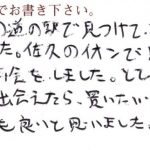 でお書き下さい。
の道の駅で見つけて、
た。佐久のイオンで
会をしました。とて
出会えたら、買いたい
も良いて思いました。